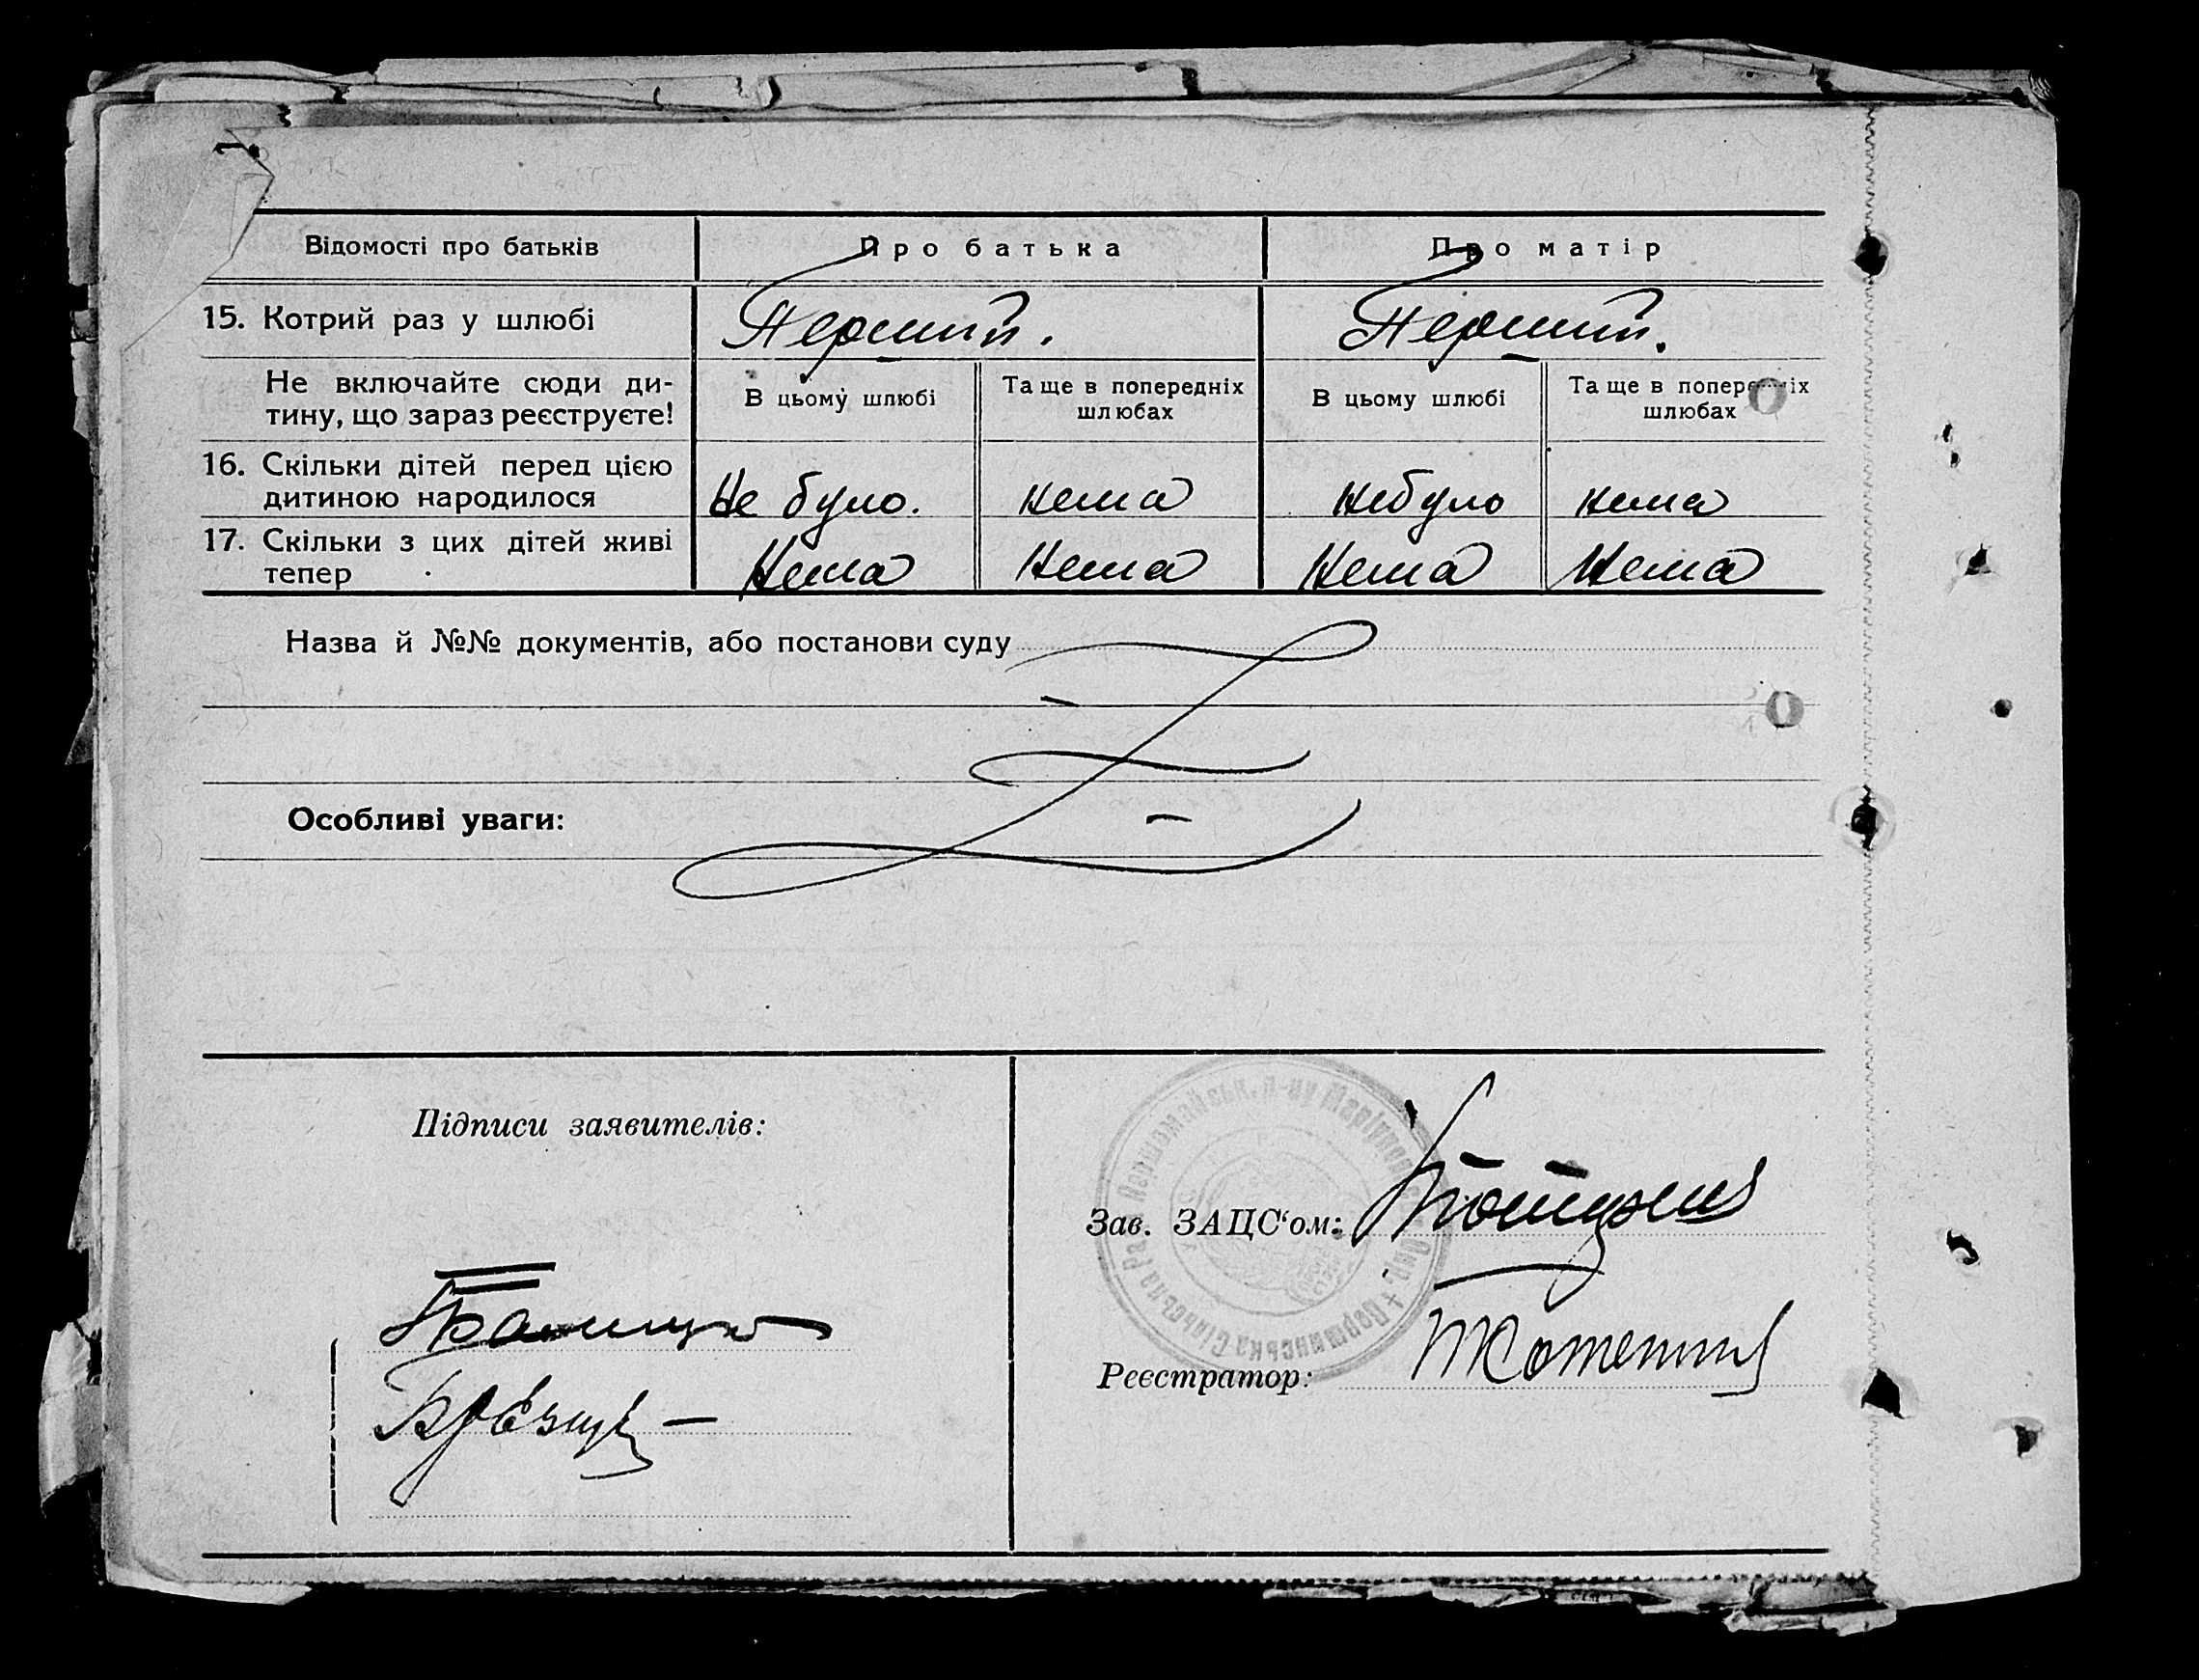 Відомості про батьків Про батька Про матір
15. Котрий раз у шлюбі Перший. Перший.
Не включайте сюди ди-
тину, що зараз реєструєте!
В цьому шлюбі
Та ще в попередніх
шлюбах
В цьому шлюбі
Та ще в попередніх
шлюбах
16. Скільки дітей перед цією
дитиною народилося
Не було. нема небуло нема
17. Скільки з цих дітей живі
тепер
Нема Нема Нема Нема
Назва й №№ документів, або постанови суду
Особливі уваги:
Підписи заявителів:
Зав. ЗАЦС‘ом:
Реєстратор:
Сільська Першомайськ. р-ну